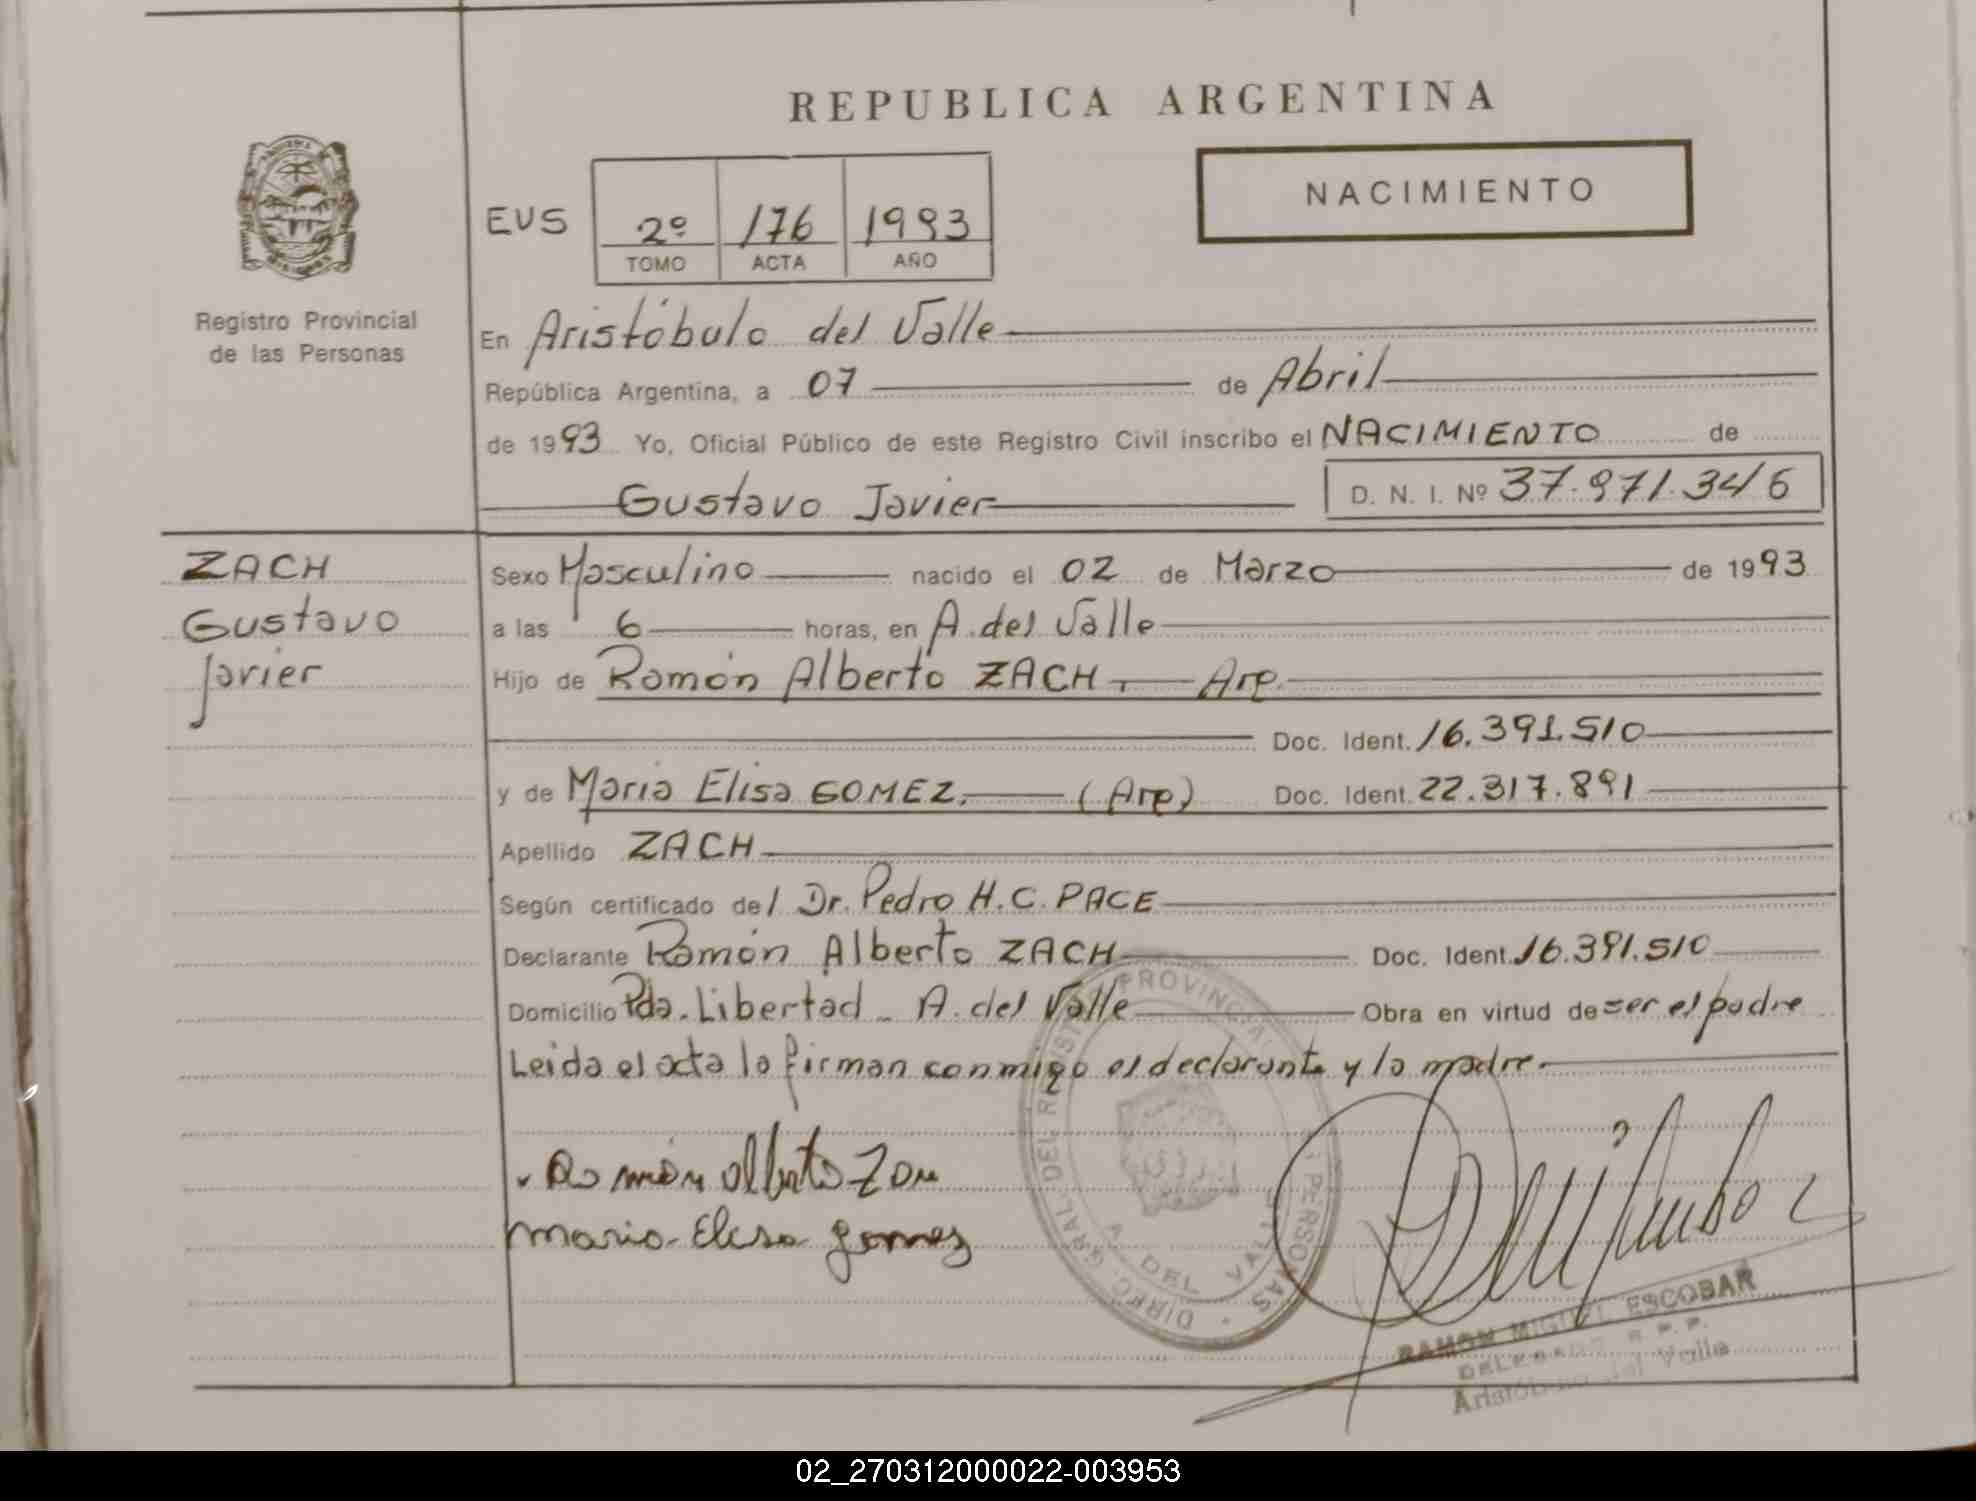 REPUBLICA ARGENTINA
NACIMIENTO
EUS 2º 176 1993
TOMO ACTA AÑO
Registro Provincial
de las Personas
En Aristóbulo del Valle
República Argentina, a 07 de Abril
de 1993 Yo, Oficial Público de este Registro Civil inscribo el NACIMIENTO de
Gustavo Javier D. N. I. Nº 37.971.346
ZACH
Gustavo
Javier
Sexo Masculino nacido el 02 de Marzo de 1993
a las 6 horas, en A. del Valle
Hijo de Ramón Alberto ZACH. Arg.
Doc. Ident. 16.391.510
y de Maria Elisa GOMEZ. (Arg) Doc. Ident. 22.317.891
Apellido ZACH
Según certificado del Dr. Pedro H. C. PACE
Declarante Ramón Alberto ZACH Doc. Ident. 16.391.510
Domicilio Pda. Libertad - A. del Valle Obra en virtud de ser el padre
Leida el acta la firman conmigo el declarante y la madre.
Ramón Alberto
Maria Elisa gomes
DIREC. GRAL. DEL REGISTRO PROVINCIAL PERSONAS
A. DEL VALLE
RAMON MIGUEL ESCOBAR
DELEGADO R.P.P.
Aristóbulo del Valle
02_270312000022-003953